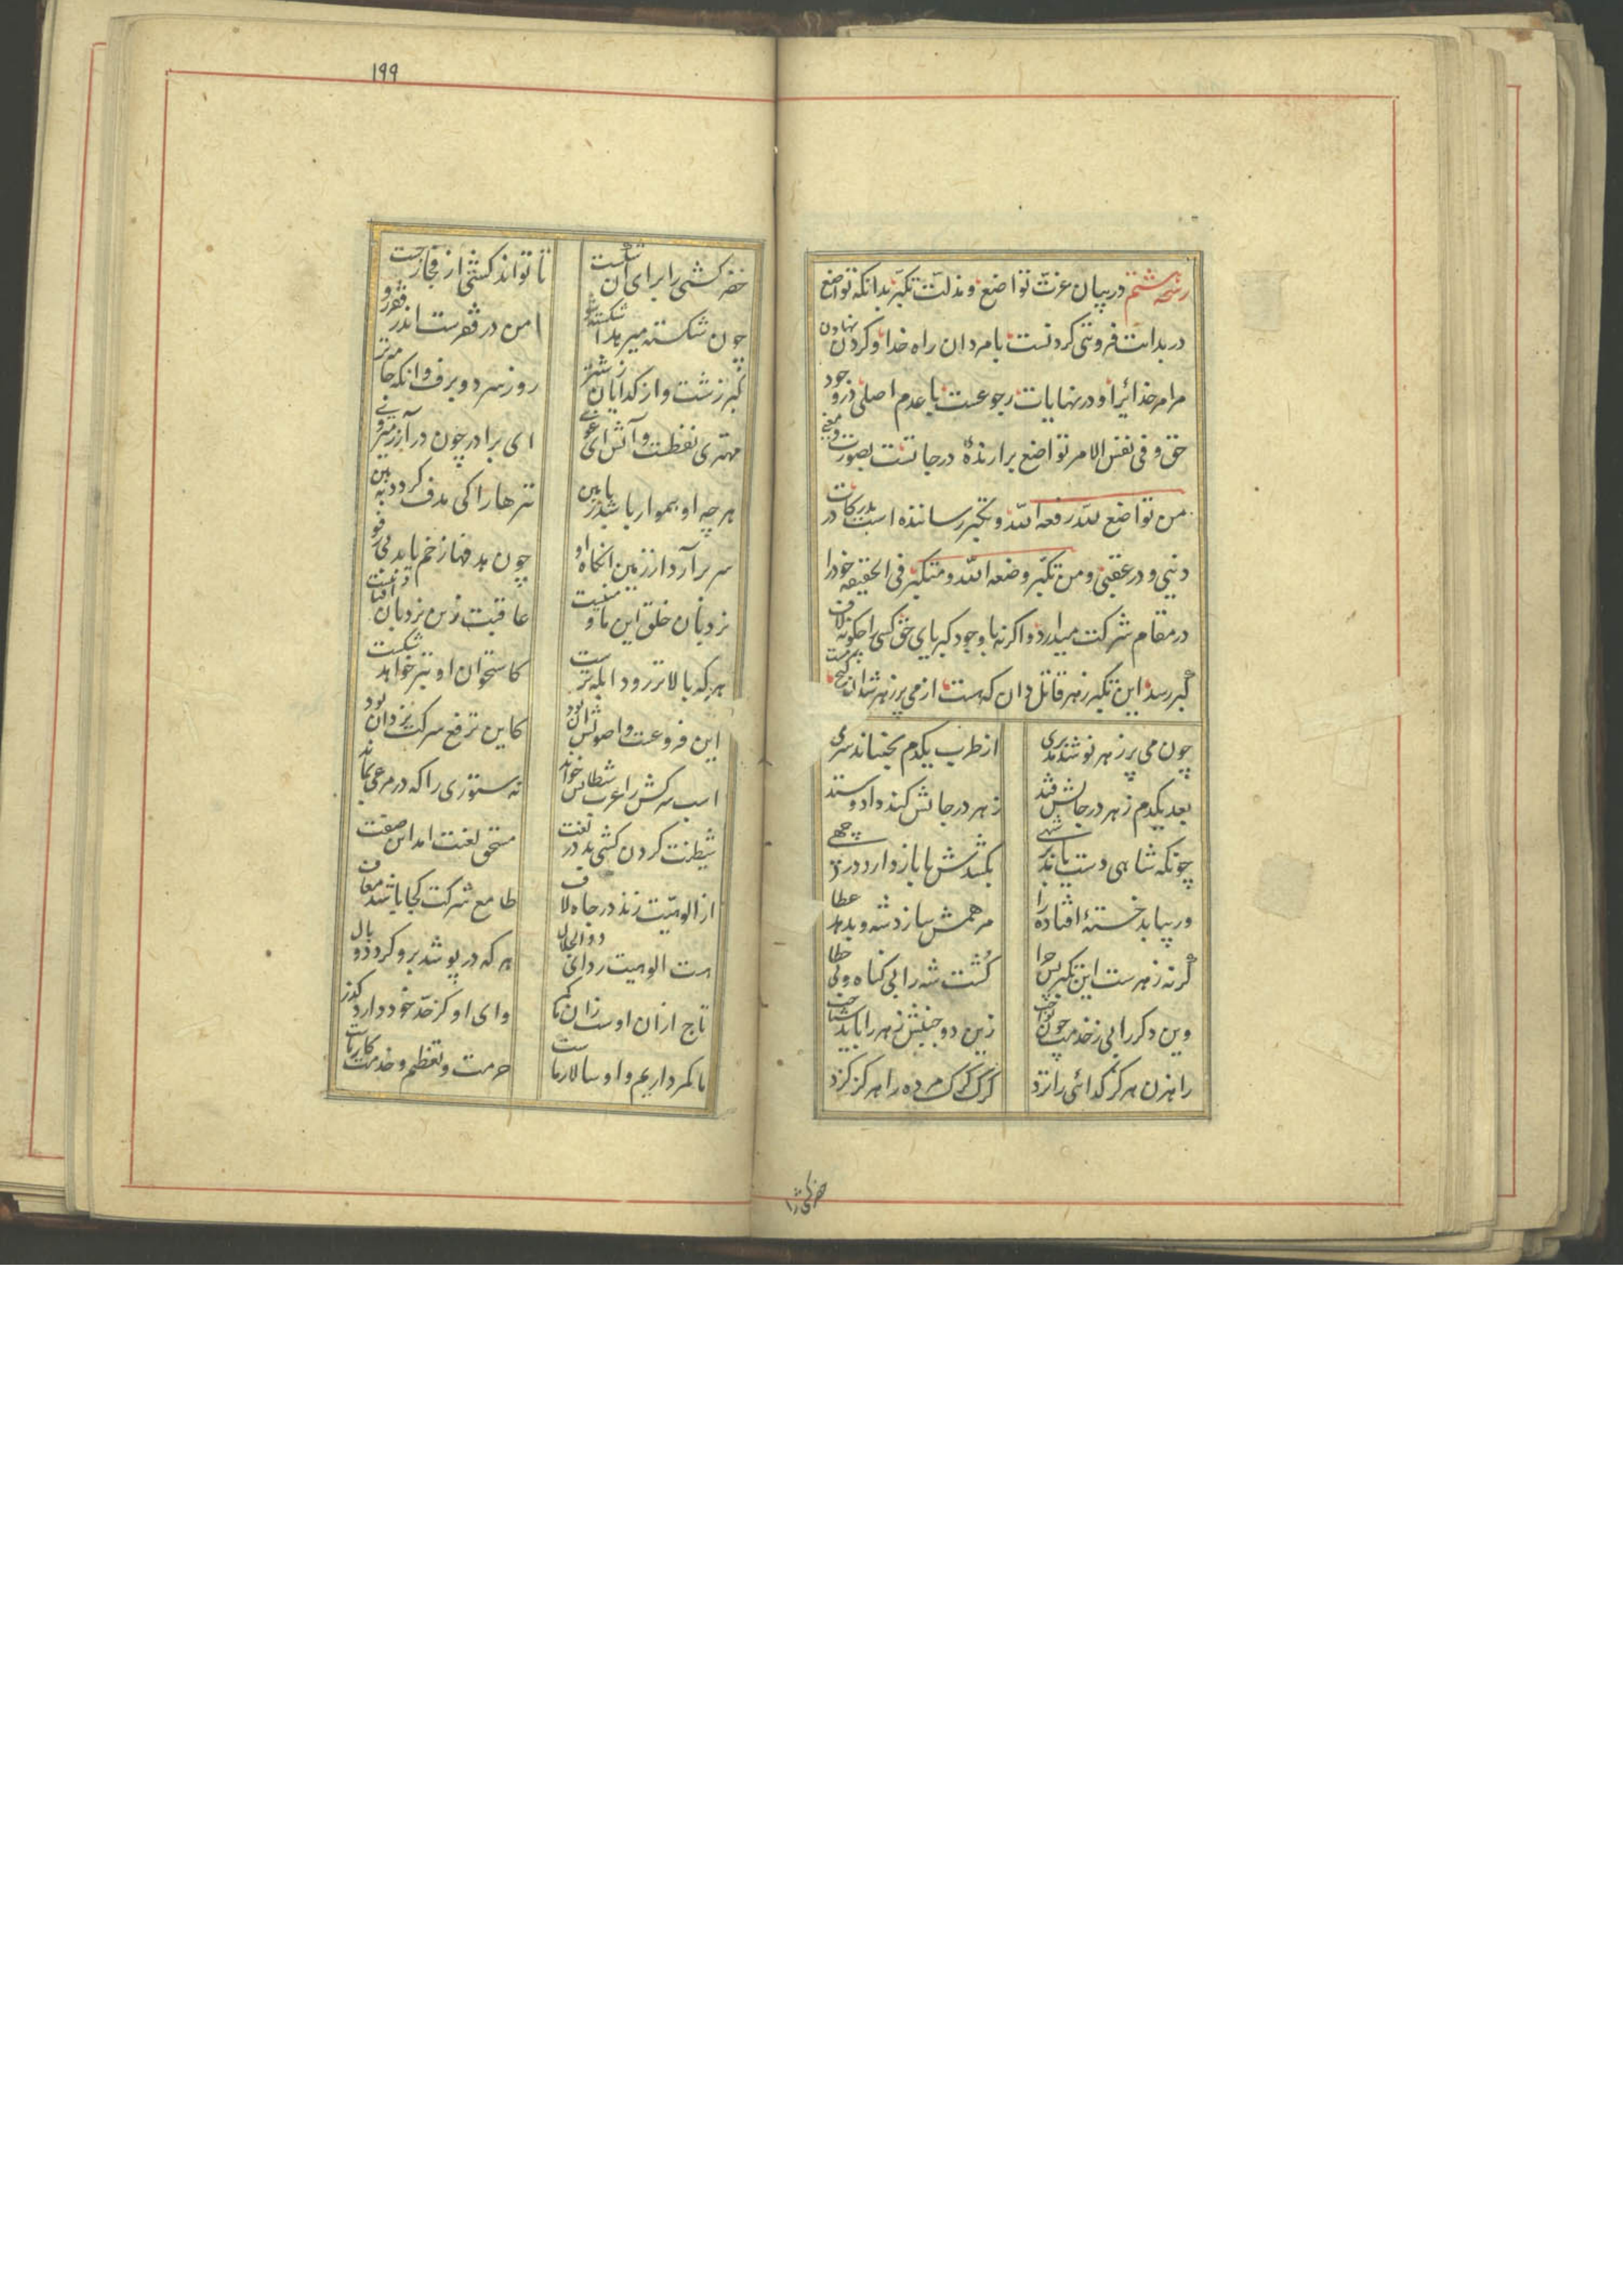 رشحه ششم در بیان عزت تواضع و مذلت تکبر بدانکه تواضع
در بدایت فروتنی کردنست با مردان راه خدا و کردن نهادن
مرامر خدائیرا و در نهایات رجوعست با عدم اصلی در وجود
حق و فی نفس الامر تواضع برارندهٔ درجاتست بصورت و معنی
من تواضع لله رفعه الله و تکبر رساننده است بدرکات در
دنیی و در عقبی و من تکبر وضعه الله و متکبر فی الحقیقه خود را
در مقام شرکت میدارد و اکرنه با وجود کبریای حق کسی را چکونه لاف
کبر رسد این تکبر زهر قاتل دان که هست از می پر زهر شد آن کیج مست
چون می پر زهر نوشد مدبری از طرب یکدم بجنباند سری
بعد یکدم زهر در جانش فتد زهر در جانش کند داد و ستد
چونکه شاهی دست یابد بر شهی بکشدش یا باز دارد در چهی
ور بیابد خستهٔ افتاده را مرهمش سازد شه و بدهد عطا
کرنه زهرست این تکبر پس چرا کُشت شه را بی کناه و بی خطا
وین دکر را بی ز خدمت چون نواخت زین دو جنبش زهر را باید شناخت
راهزن هرکز کدائی را نزد کرک کرک مرده را هرکز کزد
خضر کشتی را
۱۹۹
خضر کشتی را برای آن شکست تا تواند کشتی از فجار رست
چون شکسته میرهد اشکسته شو امن در فقرست اندر فقر رو
کبر زشت و از کدایان زشتتر روز سرد و برف وانکه جامه تر
مهتری نفطست و آتش ای غوی ای برادر چون در آزر میروی
هرچه او هموار باشد با زمین تیرها را کی هدف کردد ببین
سر برآرد از زمین انکاه او چون هدفها زخم یابد بی رفو
نردبان خلق این ما و منیست عاقبت زین نردبان افتادنیست
هرکه بالاتر رود ابله ترست کاستخوان او بتر خواهد شکست
این فروعست و اصولش آن بود کاین ترفع شرکت یزدان بود
اسب سرکش را عرب شیطانش خواند نه ستوری را که در مرعی بماند
شیطنت کردن کشی بد در لغت مستحق لعنت امد این صفت
از الوهیت زند در جاه لاف طامع شرکت کجا باشد معاف
هست الوهیت ردای ذوالجلال هرکه در پوشد برو کردد وبال
تاج ازان اوست زان ما کمر وای او کز حد خود دارد کذر
ما کمرداریم و او سالار ماست حرمت و تعظیم و خدمت کار ماست